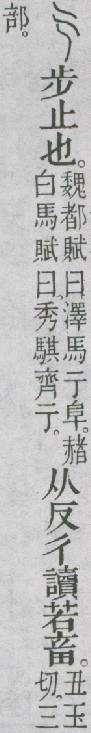 亍步止也。魏都賦曰、澤馬亍阜。赭白馬賦曰、秀騏齊亍。从反彳讀若畜。丑玉切、三
部。